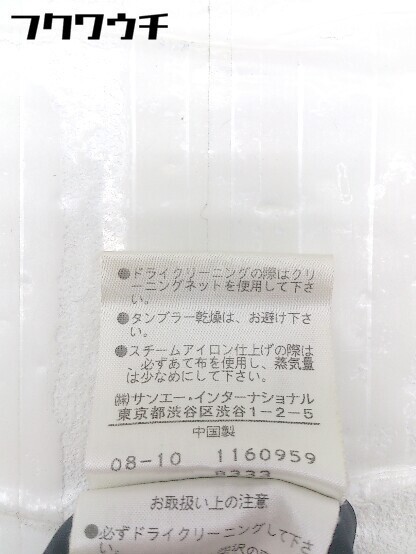 フクワウチ
●ドライクリーニングの際はクリ
ーニングネットを使用して下さ
い。
●タンブラー乾燥は、お避け下さ
い。
●スチームアイロン仕上げの際は
、必ずあて布を使用し、蒸気量
は少なめにして下さい。
㈱サンエー・インターナショナル
東京都渋谷区渋谷1-2-5
中国製
08-10 1160959
9333
お取扱い上の注意
●必ずドライクリーニングして下さ
い。